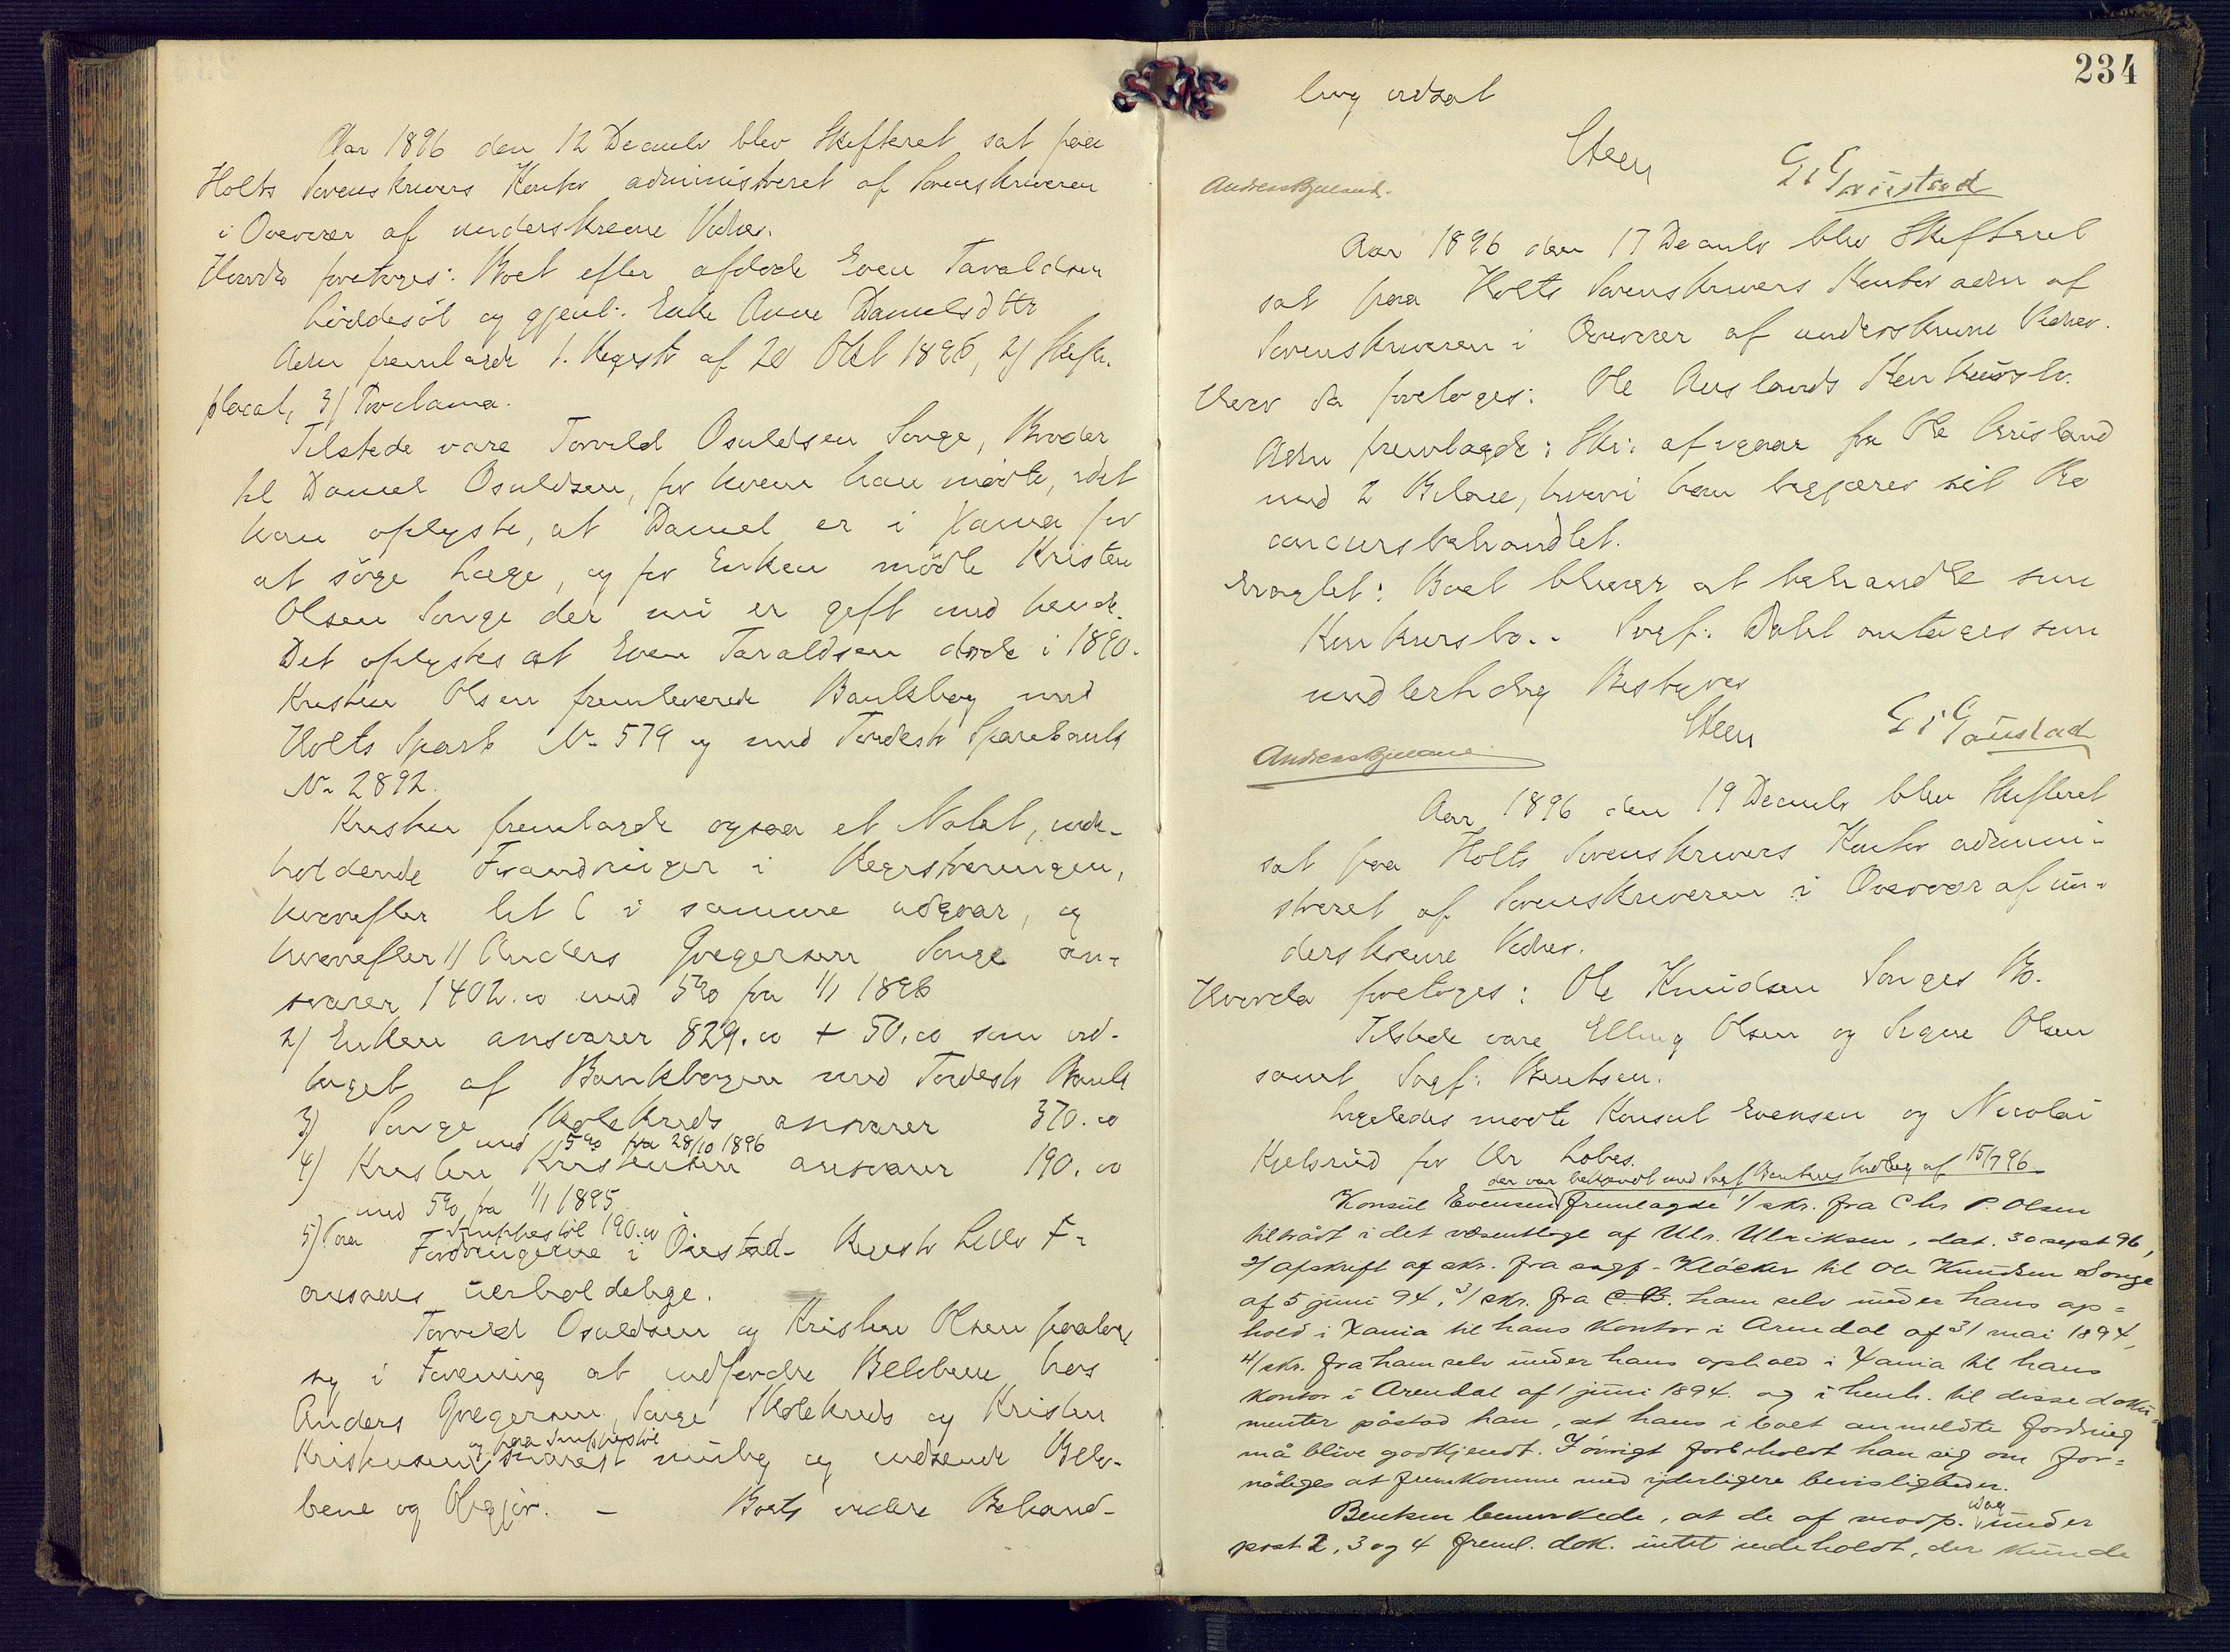 Aar 1896 den 12 Decembr blev Skifteret sat paa
Holts Sorenskrivers Kontor administreret af Sorenskriveren
i Overvær af underskrevne Vidner.
Hvorda foretoges: Boet efter afdøde Even Taraldsen
og gjenl. Enke Anne Danielsdttr
Adm fremlagde 1. Registr af 28 Okt 1896, 2/ Skifte-
placat, 3/ Proclama.
Tilstede vare Torvild Osuldsen Songe, Broder
til Daniel Osuldsen, for hvem han mødte, idet
han oplyste, at Daniel er i Xania for
at söge Læge, og for Enken mödte Kristen
Olsen Songe der nu er gift med hende.
Det oplystes at Even Taraldsen døde i 1890.
Kristen Olsen fremleverede Bankbog med
Holts Sparb No 579 og med Tvedestr Sparebank
No 2892.
Kristen fremlagde ogsaa et Notat, inde-
holdende Forandringer i Registreringen,
hvorefter lit C i samme udgaar, og
hvorefter 1/ Anders Gregersen Songe an-
svarer 1402.00 med 5% fra 1/1 1896
2/ Enken ansvarer 829.00 + 50.00 som ud-
taget af Bankbogen med Tvedestr Bank
3) Songe Skolekreds ansvarer 370.00
med 5% fra 28/10 1896
4) Kristen Kristensen ansvarer 190.00
med 5% fra 1/1 1895
190.00
5) Fordringerne i Öiestad Registr
ansees uerholdelige.
Torvild Osuldsen og Kristen Olsen paatog
sig i Forening at indfordre Beløbene hos
Anders Gregersen, Songe Skolekreds og Kristen
og paa
Kristensen snarest mulig og indsende Belø-
bene og Opgjör. – Boets videre Behand-
234
ling udsat
Steen
G. Gaustad
Andreas Bjelland.
Aar 1896 den 17 Decembr blev Skifteret
sat paa Holts Sorenskrivers Kontor adm af
Sorenskriveren i Overvær af underskrevne Vidner.
Hvor da foretoges: Ole Auslands Konkursbo.
Adm fremlagde: Skr. af igaar fra Ole Ausland
med 2 Bilage, hvori han begjærer sit Bo
concursbehandlet.
Eragtet: Boet bliver at behandle som
Konkursbo. Sagf. Dahl antages som
midlertidig Bestyrer
Steen
G. Gaustad
Andreas Bjelland
Aar 1896 den 19 Decembr blev Skifteret
sat paa Holts Sorenskrivers Kontor admini-
streret af Sorenskriveren i Overvær af un-
derskrevne Vidner.
Hvorda foretoges: Ole Knudsen Songes Bo.
Tilstede vare Elling Olsen og Signe Olsen
samt Sagf. Bentsen.
Ligeledes mødte Konsul Evensen og Nicolai
Kjelsrud for Chr Lobes.
der var bekjendt med Sagf Bentsens Indlæg af 15/7 96
Konsul Evensen fremlagde 1/ skr. fra Chr P. Olsen
tiltrådt i det væsentlige af Ulr. Ulriksen, dat. 30 sept 96,
2/ afskrift af skr. fra sagf. Klöcker til Ole Knudsen Songe
af 5 juni 94, 3/ skr. fra C. B. ham selv under hans op=
hold i Xania til hans Kontor i Arendal af 31 mai 1894,
4/ skr. fra ham selv under hans ophold i Xania til hans
Kontor i Arendal af 1 juni 1894. og i henh. til disse doku=
menter påstod han, at hans i boet anmeldte fordring
må blive godkjendt. Iövrigt forbeholdt han sig om for=
nödiges at fremkomme med yderligere bevisligheder.
Bentsen bemærkede, at de af modp. idag under
post 2, 3 og 4 freml. dok. intet indeholdt, der kunde